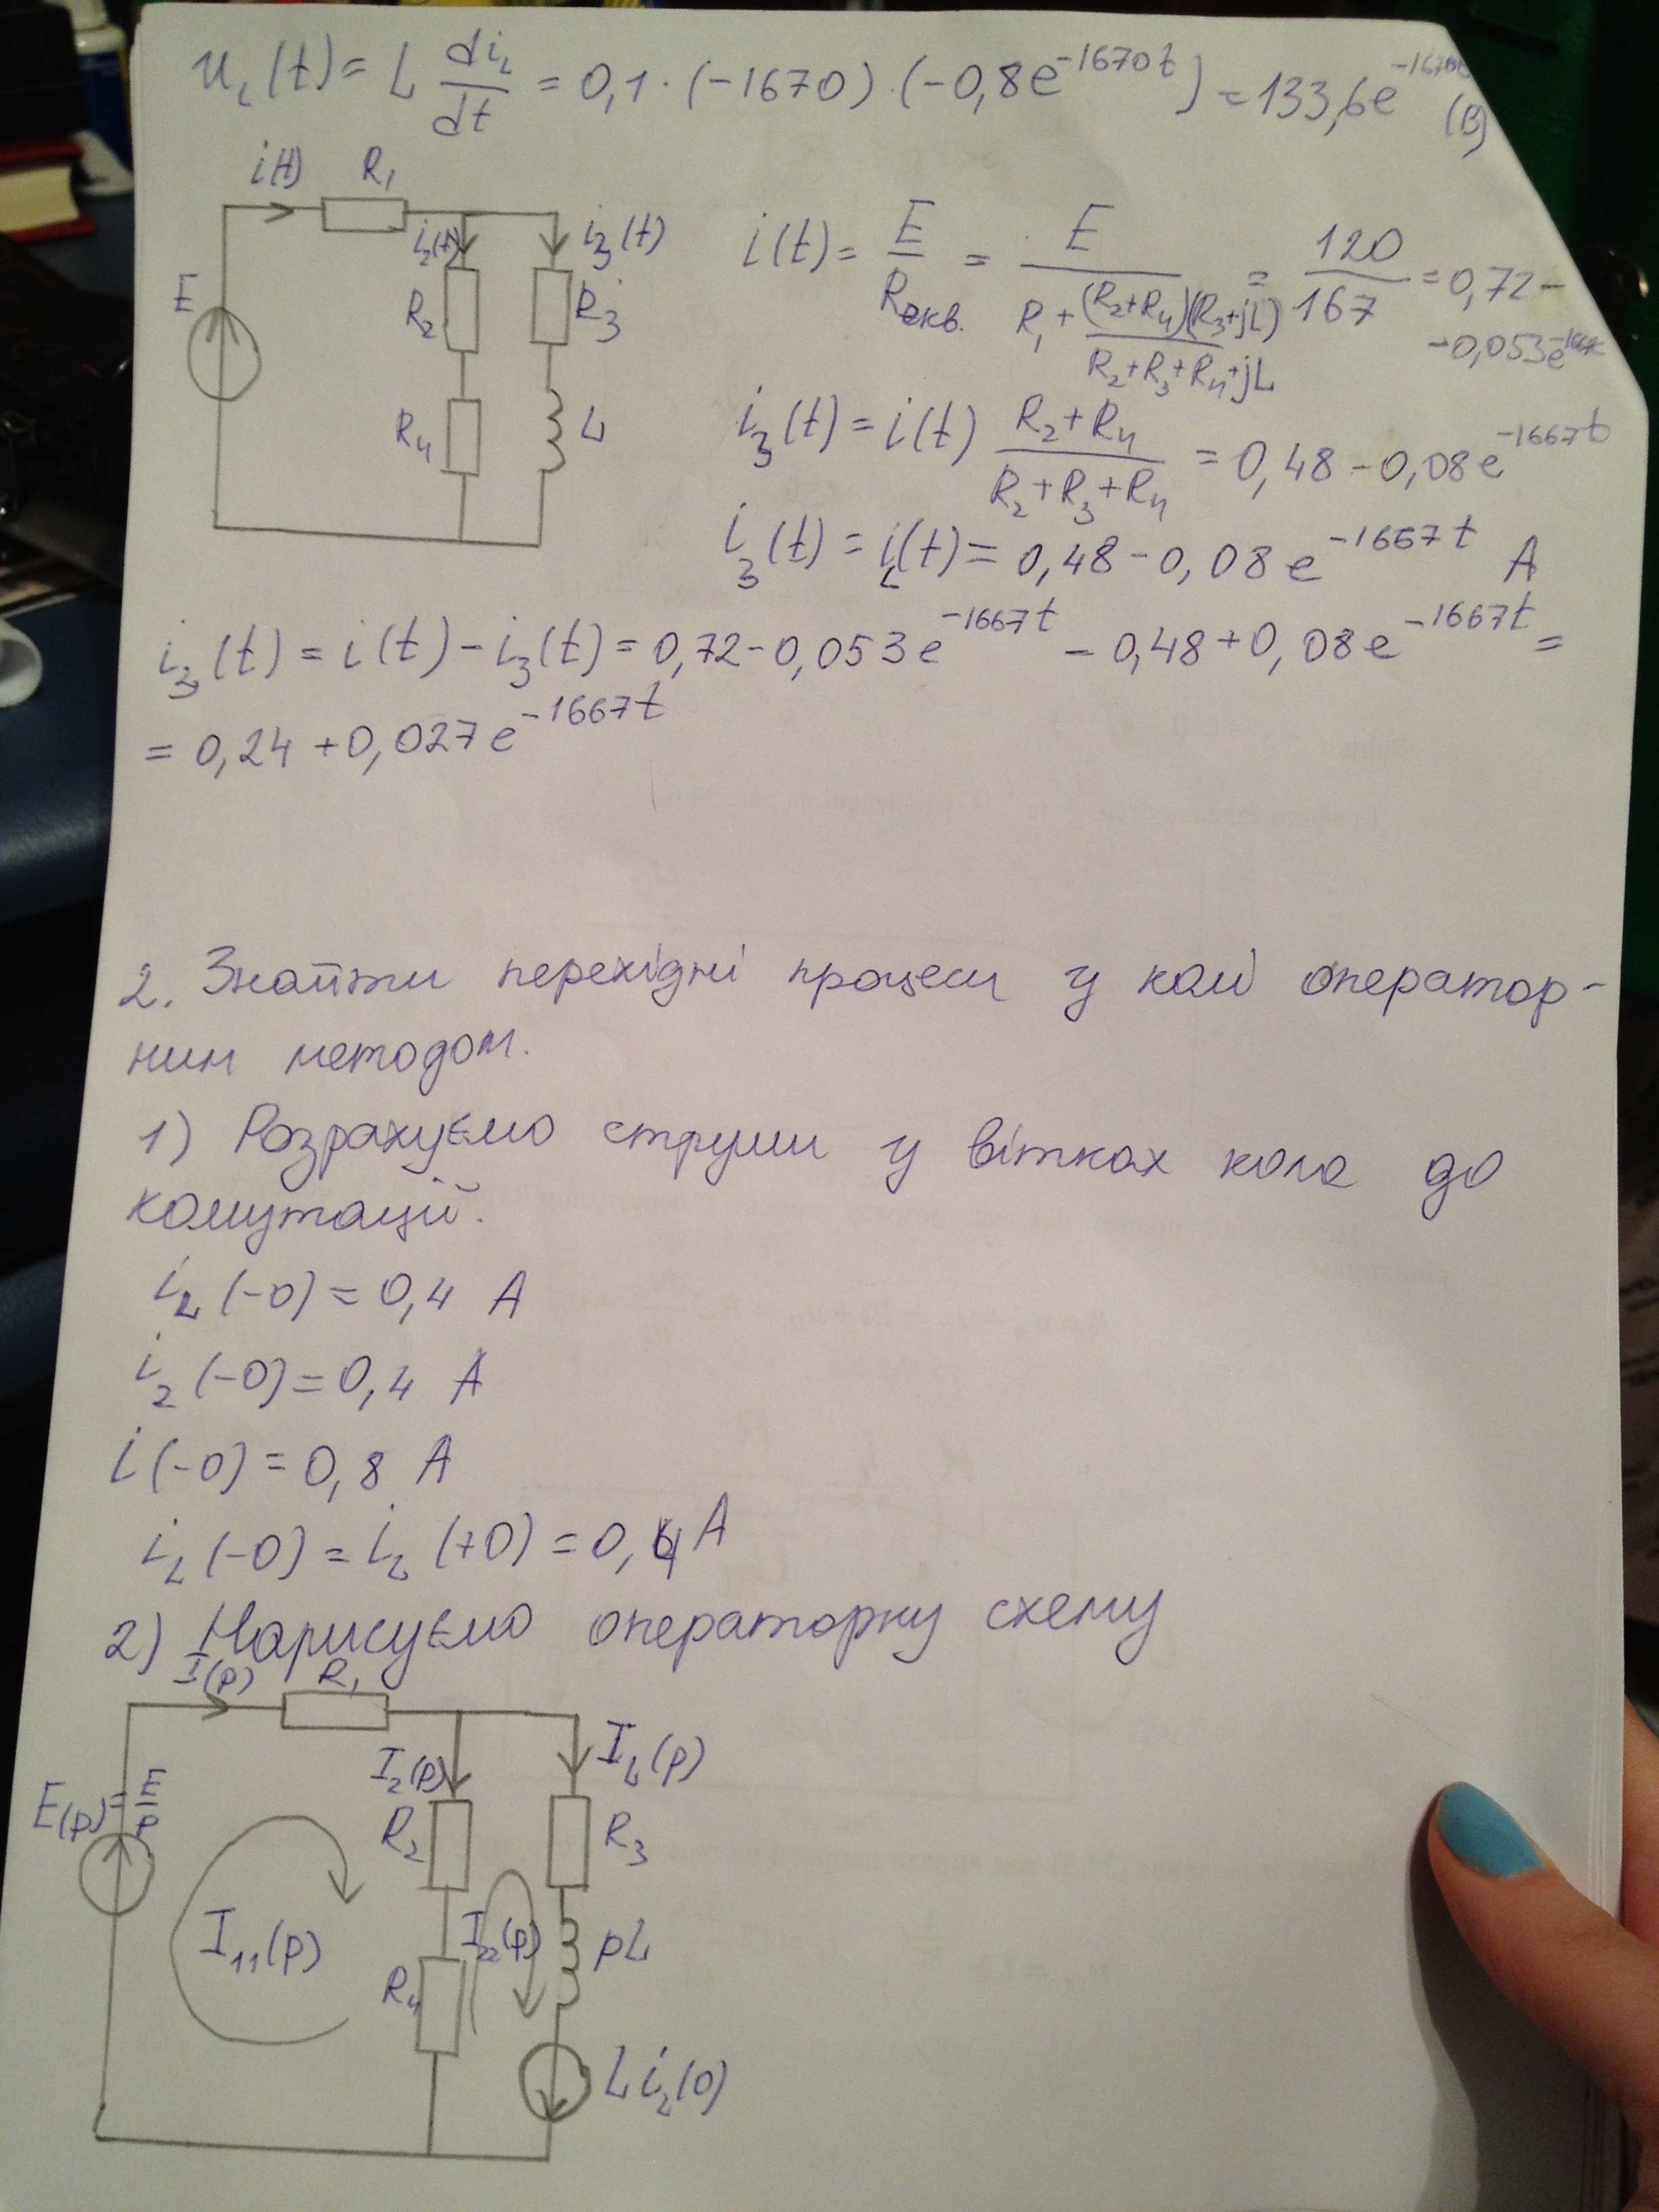 u_L(t) = L di_L/dt = 0,1 · (-1670) · (-0,8e^{-1670t}) = 133,6e^{-1670t} (В)
i(t) R_1
i_2(t) i_3(t)
E R_2 R_3
R_4 L
i(t) = E/R_{екв.} = E/(R_1 + (R_2+R_4)(R_3+jL)/(R_2+R_3+R_4+jL)) = 120/167 = 0,72 -
- 0,053e^{-1667t}
i_3(t) = i(t) (R_2+R_4)/(R_2+R_3+R_4) = 0,48 - 0,08e^{-1667t}
i_3(t) = i_L(t) = 0,48 - 0,08e^{-1667t} A
i_2(t) = i(t) - i_3(t) = 0,72 - 0,053e^{-1667t} - 0,48 + 0,08e^{-1667t} =
= 0,24 + 0,027e^{-1667t}
2. Знайти перехідні процеси у колі оператор-
ним методом.
1) Розрахуємо струми у вітках кола до
комутації.
i_L(-0) = 0,4 A
i_2(-0) = 0,4 A
i(-0) = 0,8 A
i_L(-0) = i_L(+0) = 0,4 A
2) Нарисуємо операторну схему
I(p) R_1
I_2(p) I_L(p)
E(p) = E/p R_2 R_3
I_{11}(p) I_{22}(p) pL
R_4
Li_L(0)